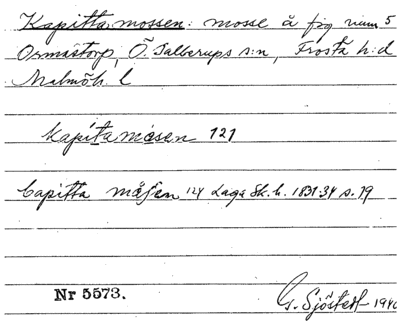 Kapitta mossen: mosse å fig num 5
Ormastorp, Ö. Sallerups s:n, Frosta h:d
Malmöh. l
Kapitamosen 121
Capitta måsen 124 Laga Sk. h. 1831-34 s. 19
Nr 5573.
G. Sjöstedt 1940